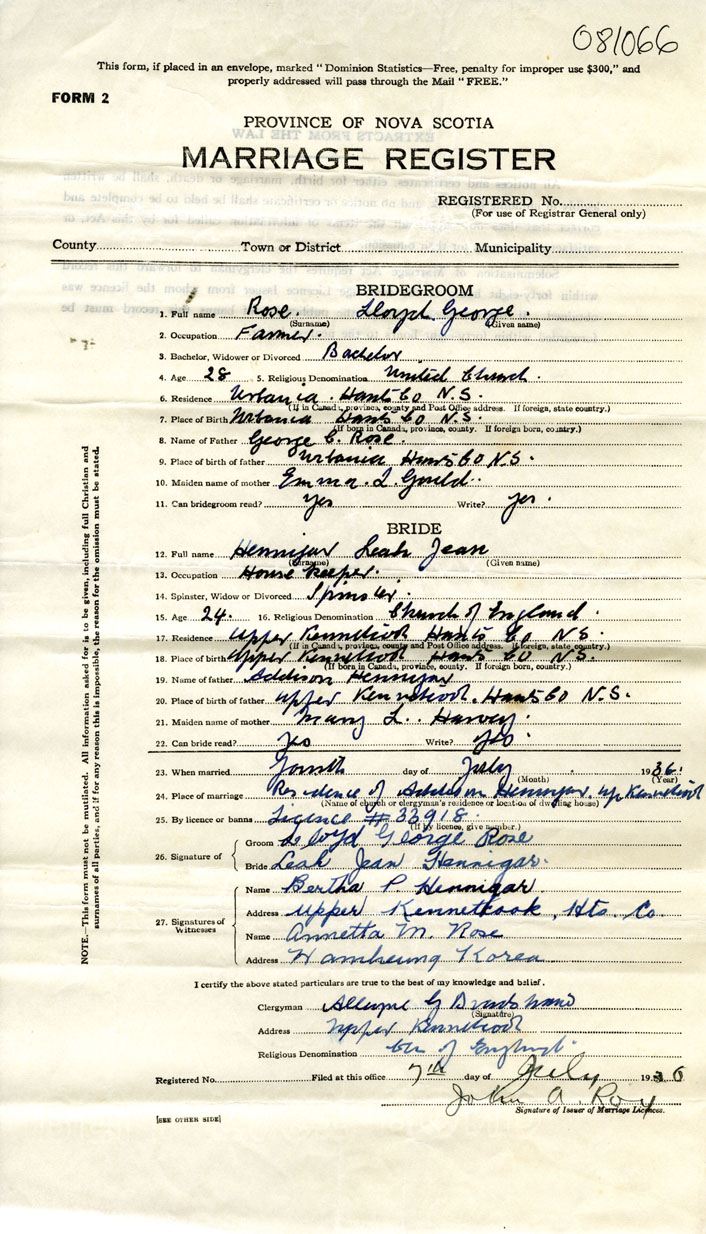 081066
This form, if placed in an envelope, marked "Dominion Statistics—Free, penalty for improper use $300," and
properly addressed will pass through the Mail "FREE."
FORM 2
PROVINCE OF NOVA SCOTIA
MARRIAGE REGISTER
REGISTERED No.
(For use of Registrar General only)
County Town or District Municipality
BRIDEGROOM
1. Full name Rose. Lloyd George.
(Surname) (Given name)
2. Occupation Farmer.
3. Bachelor, Widower or Divorced Bachelor
4. Age 28 5. Religious Denomination United Church.
6. Residence Urbania. Hants Co N.S.
(If in Canada, province, county and Post Office address. If foreign, state country.)
7. Place of Birth Urbania Hants Co N.S.
(If born in Canada, province, county. If foreign born, country.)
8. Name of Father George C. Rose.
9. Place of birth of father Urbania Hants Co N.S.
10. Maiden name of mother Emma. I. Gould.
11. Can bridegroom read? Yes Write? yes.
BRIDE
12. Full name Hennigar Leah Jean
(Surname) (Given name)
13. Occupation House keeper.
14. Spinster, Widow or Divorced Spinster.
15. Age 24. 16. Religious Denomination Church of England.
17. Residence Upper Kennetcook Hants Co N.S.
(If in Canada, province, county and Post Office address. If foreign, state country.)
18. Place of birth Upper Kennetcook Hants Co N.S.
(If born in Canada, province, county. If foreign born, country.)
19. Name of father Addison Hennigar
20. Place of birth of father Upper Kennetcook. Hants Co N.S.
21. Maiden name of mother Mary L. Harvey.
22. Can bride read? Yes Write? Yes.
23. When married Fourth day of July 1936.
(Month) (Year)
24. Place of marriage Residence of Addison Hennigar. Up Kennetcook
(Name of church or clergyman's residence or location of dwelling house)
25. By licence or banns Licence # 33918.
(If by licence, give number.)
26. Signature of
Groom Lloyd George Rose
Bride Leah Jean Hennigar.
27. Signatures of
Witnesses
Name Bertha P. Hennigar
Address Upper Kennetcook, Hts. Co.
Name Annetta M. Rose
Address Hamheung Korea
I certify the above stated particulars are true to the best of my knowledge and belief.
Clergyman G
(Signature)
Address Upper Kennetcook
Religious Denomination Ch of England.
Registered No. Filed at this office 7th day of July 1936
John A. Roy
Signature of Issuer of Marriage Licences.
[SEE OTHER SIDE]
NOTE.—This form must not be mutilated. All information asked for is to be given, including full Christian and
surnames of all parties, and if for any reason this is impossible, the reason for the omission must be stated.